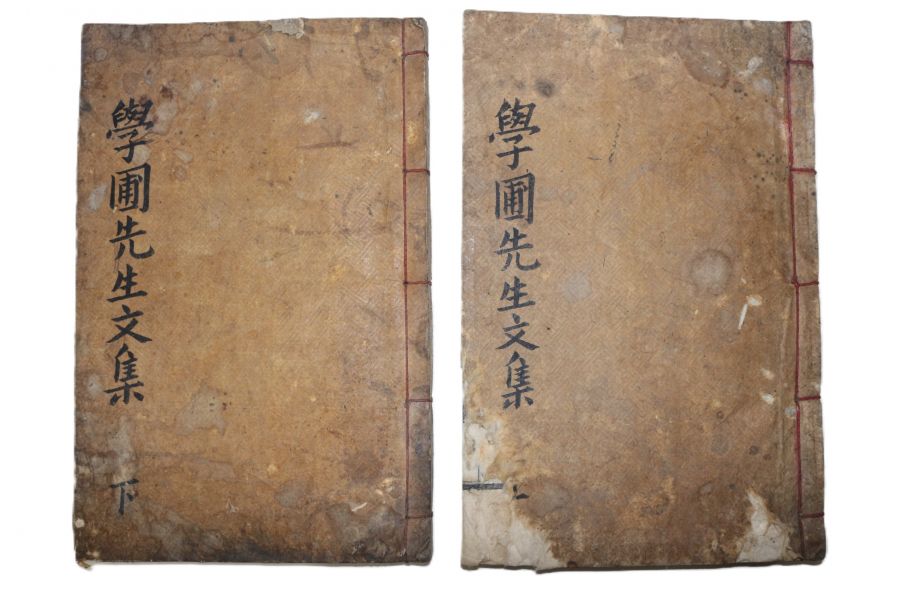 學圃先生文集
下
學圃先生文集